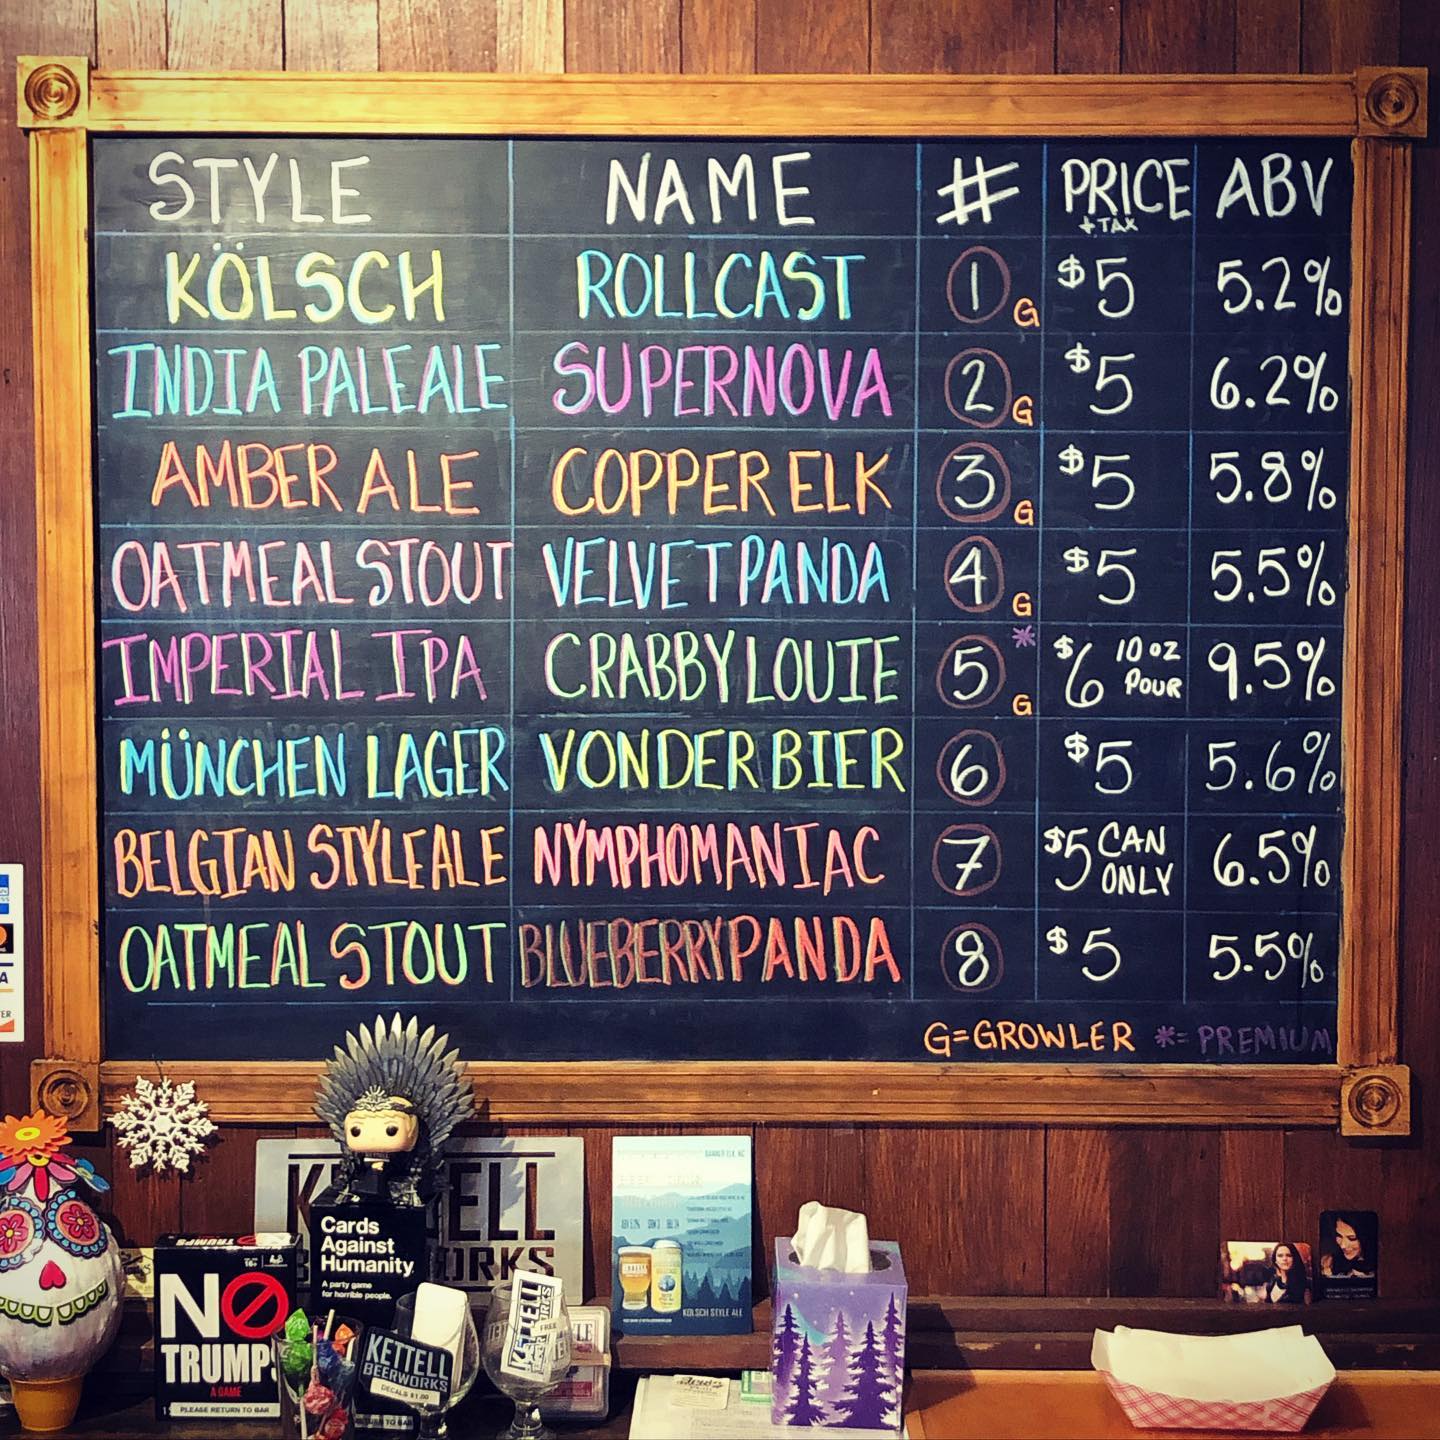 STYLE NAME # PRICE + TAX ABV
KÖLSCH ROLLCAST 1 G $5 5.2%
INDIA PALE ALE SUPERNOVA 2 G $5 6.2%
AMBER ALE COPPER ELK 3 G $5 5.8%
OATMEAL STOUT VELVET PANDA 4 G $5 5.5%
IMPERIAL IPA CRABBY LOUIE 5 * G $6 10 OZ POUR 9.5%
MÜNCHEN LAGER VONDER BIER 6 $5 5.6%
BELGIAN STYLE ALE NYMPHOMANIAC 7 $5 CAN ONLY 6.5%
OATMEAL STOUT BLUEBERRY PANDA 8 $5 5.5%
G=GROWLER *=PREMIUM
BANNER ELK, NC
KÖLSCH STYLE ALE
Cards
Against
Humanity
A party game
for horrible people.
NO
TRUMPS
A GAME
PLEASE RETURN TO BAR
KETTELL
BEERWORKS
DECALS $1.00
KETTELL
FREE